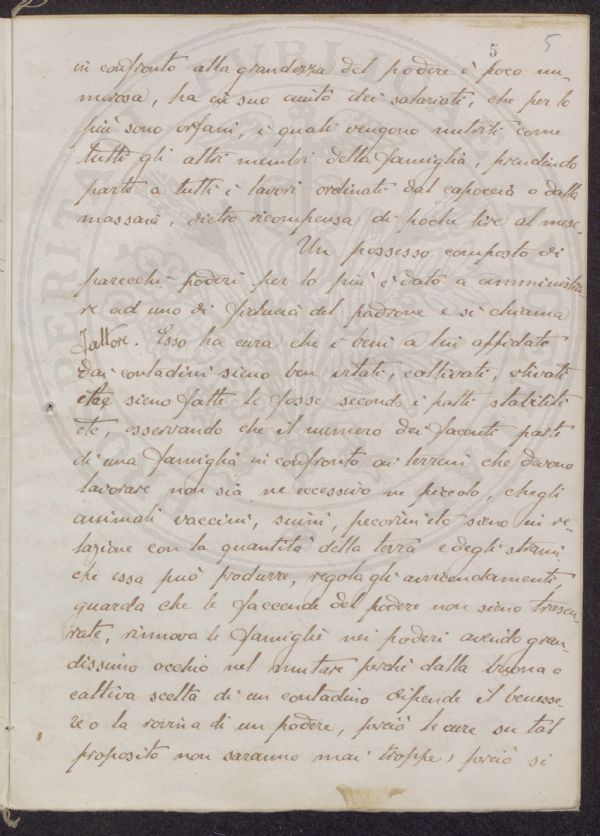 5 5
in confronto alla grandezza del podere è poco nu-
merosa, ha in suo aiuto dei salariati, che per lo
più sono orfani, i quali vengono nutriti come
tutti gli altri membri della famiglia, prendendo
parte a tutti i lavori ordinati dal capoccia o dalla
massaia, dietro ricompensa di poche lire al mese.
Un possesso composto di
parecchi poderi per lo più è dato a amministra-
re ad uno di fiducia del padrone e si chiama
fattore. Esso ha cura che i beni a lui affidati
dai contadini sieno ben vitati, coltivati, olivati
etc, sieno fatte le fosse secondo i patti stabiliti
etc, osservando che il numero dei facenti parte
di una famiglia in confronto ai terreni che devono
lavorare non sia ne eccessivo ne piccolo, che gli
animali vaccini, suini, pecorini etc sieno in re-
lazione con la quantità della terra e degli strami
che essa può produrre, regola gli avvicendamenti,
guarda che le faccende del podere non sieno trascu-
rate, rinnova le famiglie nei poderi avendo gran-
dissimo occhio nel mutare perchè dalla buona o
cattiva scelta di un contadino dipende il benesse-
re o la rovina di un podere, perciò le cure su tal
proposito non saranno mai troppe, perciò si